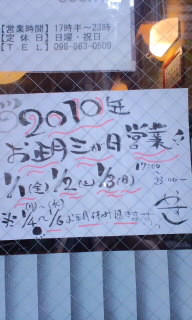 【営業時間】17時半～23時
【定休日】日曜・祝日
【TEL】098-863-0509
2010年
お正月三が日営業!!
1/1(金) 1/2(土) 1/3(日)
17:00～23:00
(月)～(水)
※1/4～1/6お正月休み頂きます